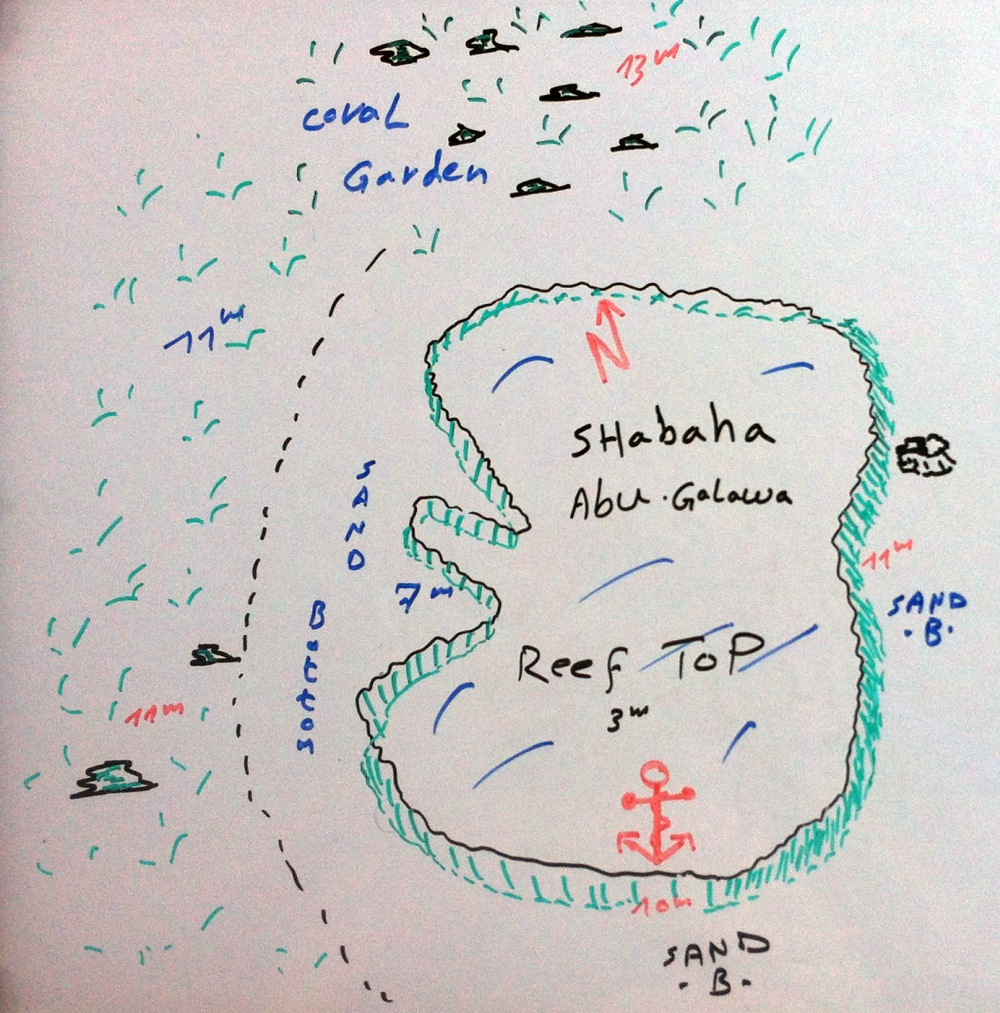 13m
coral
Garden
11m
N
SHabaha
Abu.Galawa
SAND
Bottom
7m
11m
SAND
.B.
Reef ToP
3m
11m
10m
SAND
.B.